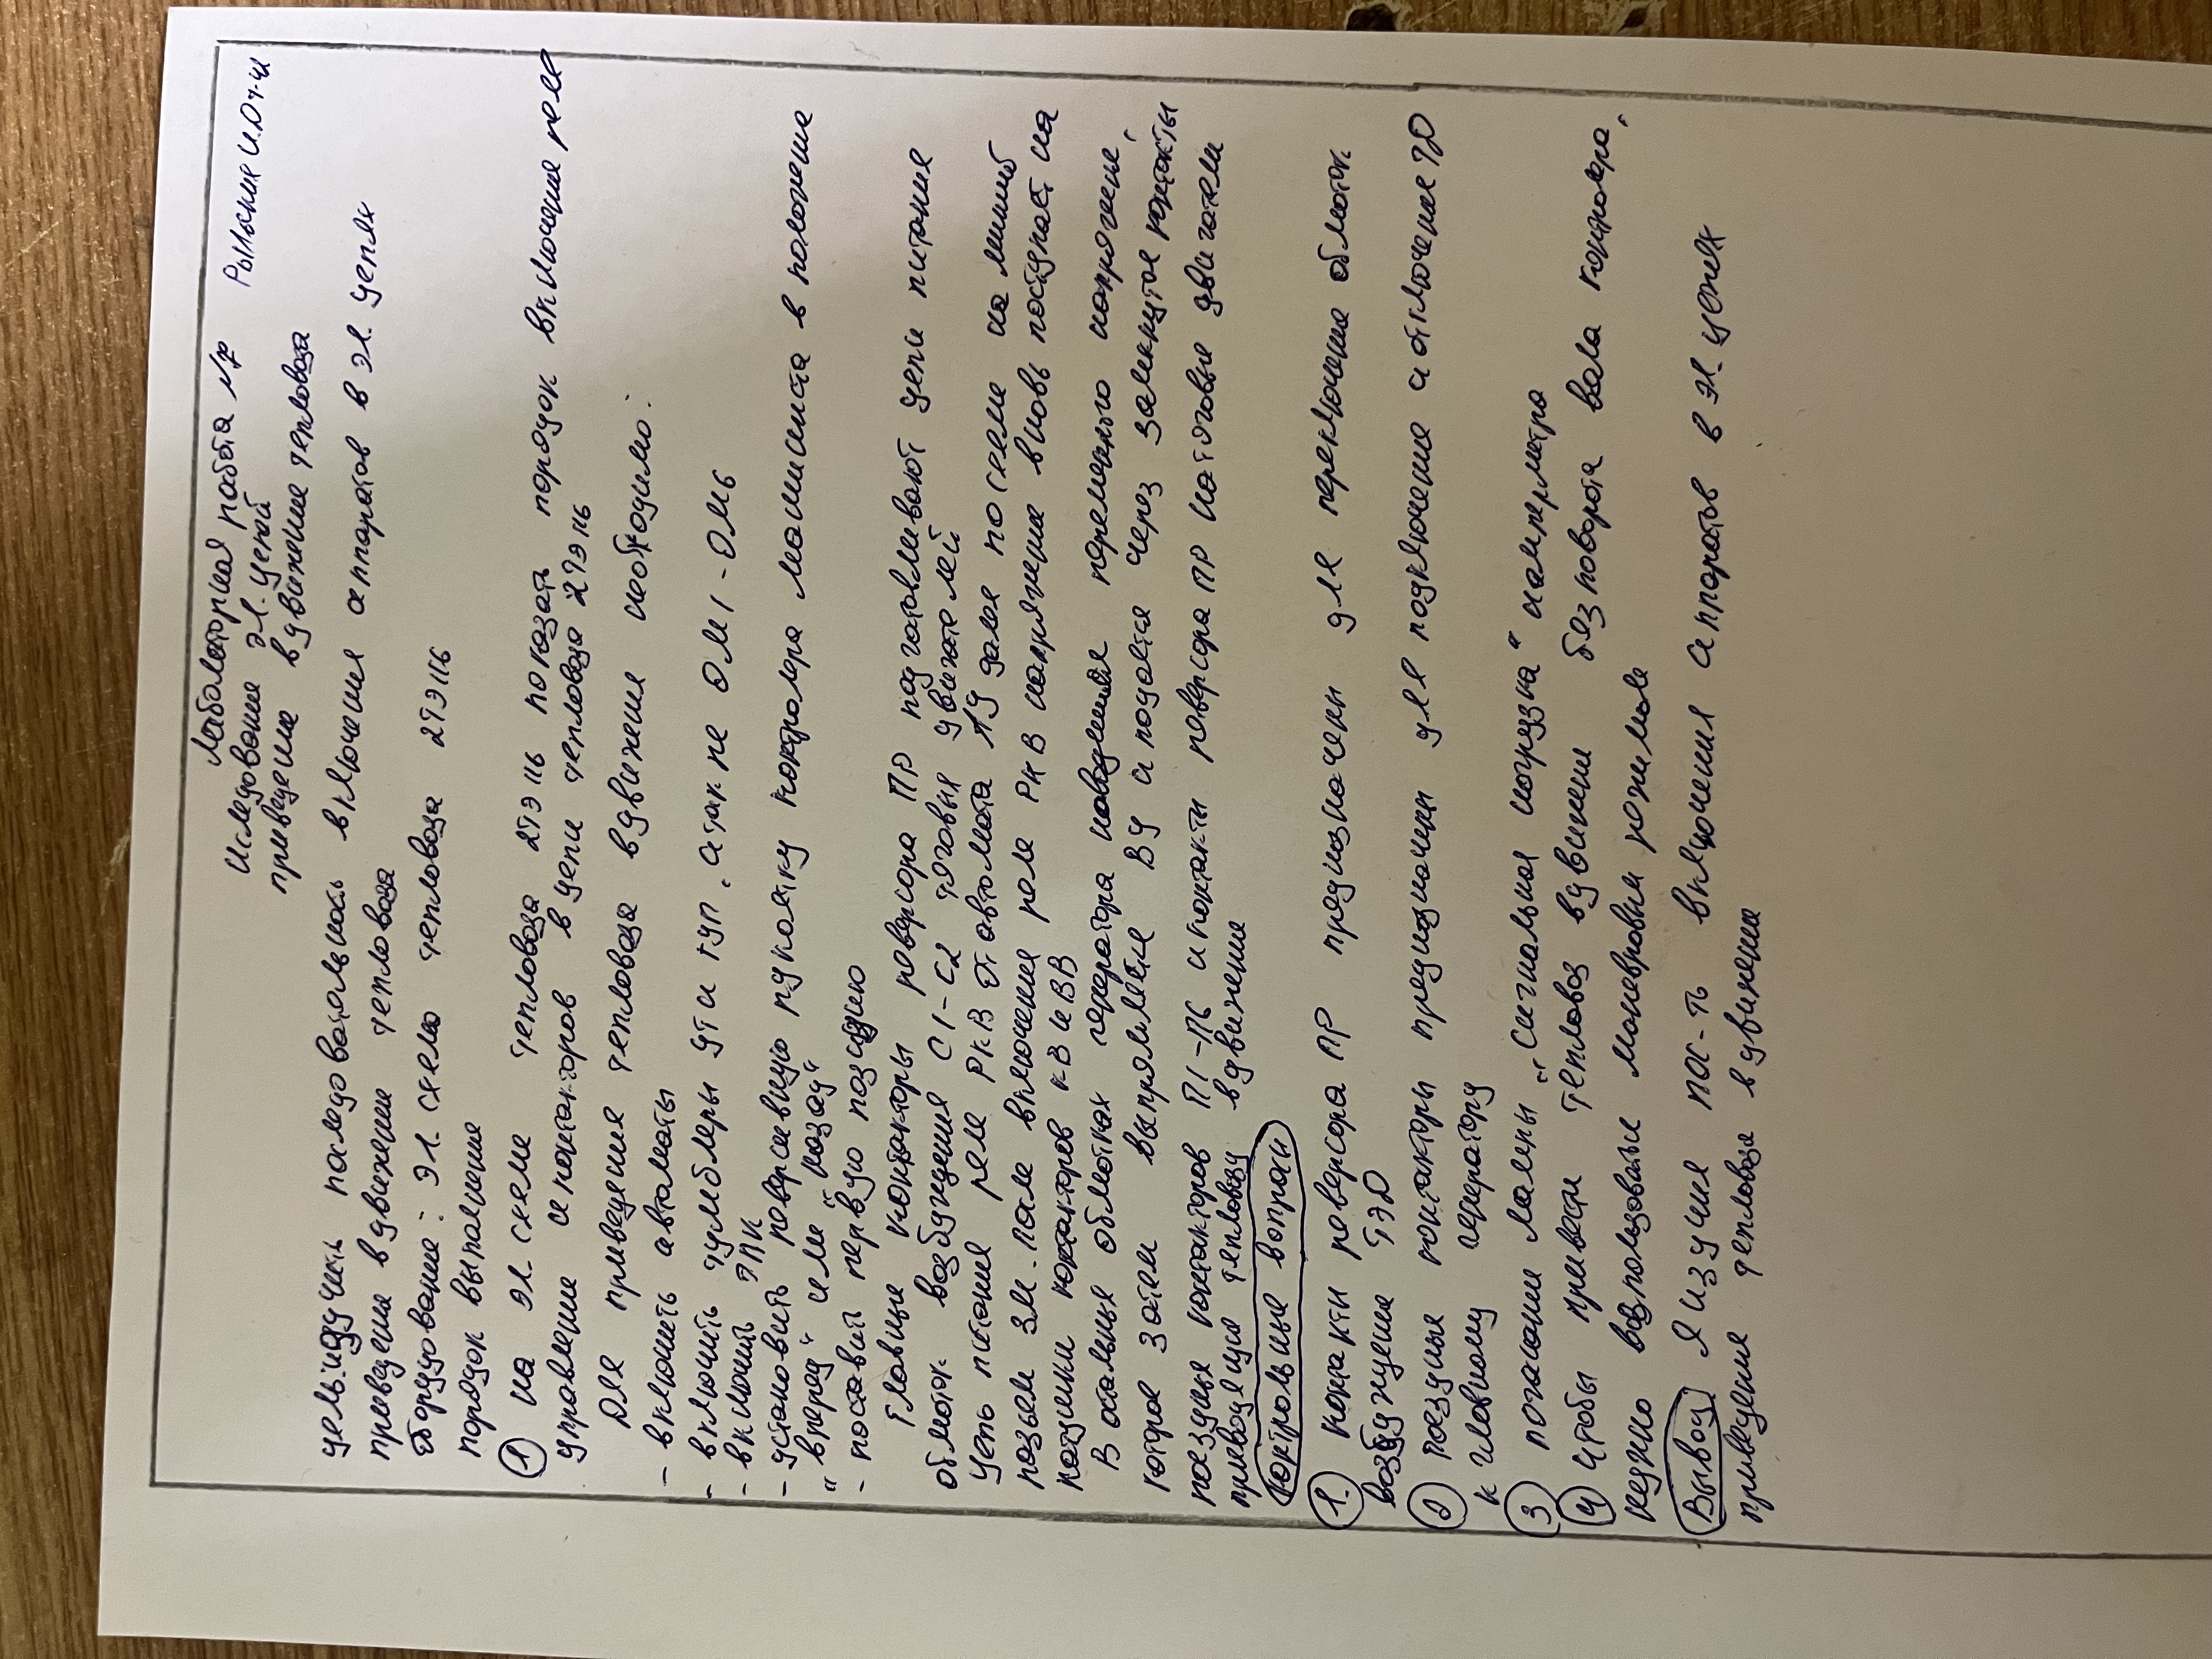 Лабораторная работа №
Рыльский И.Д т-41
Исследование эл. цепей
приведение в движение тепловоза
цель: изучить последовательность включения аппаратов в эл. цепях
приведения в движение тепловоза
оборудование: эл. схема тепловоза 2тэ116
порядок выполнения
1 на эл. схеме тепловоза 2тэ116 показать порядок включение реле
управление и контакторов в цепи тепловоза 2тэ116
Для приведения тепловоза в движение необходимо:
- включить автоматы
- включить тумблеры УТ и ТУП. а так же ОМ1-ОМ6
- включить ЭПК
- установить реверсивную рукоятку контролера машиниста в положение
"вперёд" или "назад"
- поставить первую позицию
Главные контакторы реверсора ПР подготавливают цепи питания
обмоток возбуждения С1-С2 тяговых двигателей
цепь питания реле РКВ от автомата АУ далее по схеме на минус
возьем 3м. после включения реле РКВ напряжение вновь поступает на
катушки контакторов КВ и ВВ
В остальных обмотках генератора наводится переменного напряжение,
которое затем выпрямляется ВУ и подается через замкнутое контакты
поездных контакторов П1-П6 и контакты реверсора ПР на тяговые двигатели
приводящие тепловоз в движение
контрольные вопросы
1. контакты реверсора ПР предназначены для переключение обмоток
возбуждение ТЭД
2 поездные контакторы предназначены для подключение и отключение ТД
к главному генератору
3 погасании лампы "сигнальная нагрузка" и амперметра
4 чтобы привести тепловоз в движении без поворота вала контролера,
нужно воспользоваться маневровым режимом
Вывод Я изучил пос-ть включения аппаратов в эл. цепях
приведения тепловоза в движении